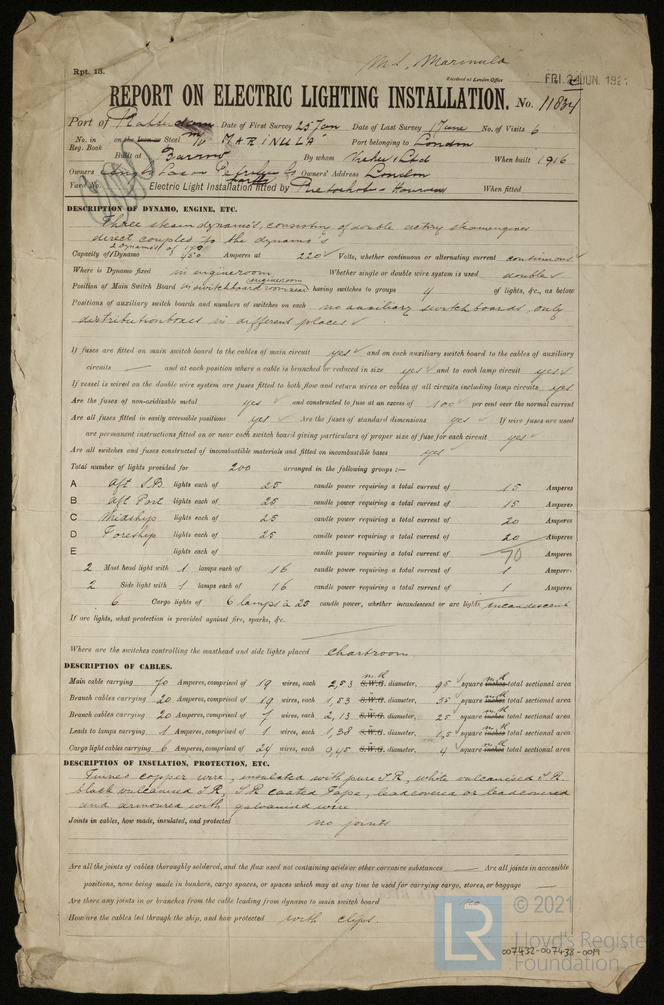 Rpt. 13.
M.S. Marinula
Received at London Office FRI. 24 JUN. 192
REPORT ON ELECTRIC LIGHTING INSTALLATION. No. 11834
Port of Date of First Survey 25 Jan Date of Last Survey 1 June No. of Visits 6
No. in Reg. Book on the Iron or Steel "MARINULA" Port belonging to London
Built at Barrow By whom Vickers Ltd When built 1916
Owners Anglo Saxon Petroleum Co Owners' Address London
Yard No. Electric Light Installation fitted by When fitted
DESCRIPTION OF DYNAMO, ENGINE, ETC.
Three steam dynamo's, consisting of double acting steamengines
direct coupled to the dynamo's
2 Dynamo's of 170
Capacity of 1 Dynamo 450 Amperes at 220 Volts, whether continuous or alternating current continuous
Where is Dynamo fixed in engineroom Whether single or double wire system is used double
Position of Main Switch Board in switchboard room near engineroom having switches to groups 4 of lights, &c., as below
Positions of auxiliary switch boards and numbers of switches on each no auxiliary switchboards, only
distributionboxes in different places
If fuses are fitted on main switch board to the cables of main circuit yes and on each auxiliary switch board to the cables of auxiliary
circuits — and at each position where a cable is branched or reduced in size yes and to each lamp circuit yes
If vessel is wired on the double wire system are fuses fitted to both flow and return wires or cables of all circuits including lamp circuits yes
Are the fuses of non-oxidizable metal yes and constructed to fuse at an excess of 100 per cent over the normal current
Are all fuses fitted in easily accessible positions yes Are the fuses of standard dimensions yes If wire fuses are used
are permanent instructions fitted on or near each switch board giving particulars of proper size of fuse for each circuit yes
Are all switches and fuses constructed of incombustible materials and fitted on incombustible bases yes
Total number of lights provided for 200 arranged in the following groups :—
A Aft S.B. lights each of 25 candle power requiring a total current of 15 Amperes
B Aft Port lights each of 25 candle power requiring a total current of 15 Amperes
C Midship lights each of 25 candle power requiring a total current of 20 Amperes
D Foreship lights each of 25 candle power requiring a total current of 20 Amperes
E lights each of candle power requiring a total current of 70 Amperes
2 Mast head light with 1 lamps each of 16 candle power requiring a total current of 1 Amperes
2 Side light with 1 lamps each of 16 candle power requiring a total current of 1 Amperes
6 Cargo lights of 6 lamps à 25 candle power, whether incandescent or arc lights incandescent
If arc lights, what protection is provided against fire, sparks, &c.
Where are the switches controlling the masthead and side lights placed chartroom
DESCRIPTION OF CABLES.
Main cable carrying 70 Amperes, comprised of 19 wires, each 2,53 S.W.G. diameter, 95 square inches total sectional area
Branch cables carrying 20 Amperes, comprised of 19 wires, each 1,53 S.W.G. diameter, 35 square inches total sectional area
Branch cables carrying 20 Amperes, comprised of 7 wires, each 2,13 S.W.G. diameter, 25 square inches total sectional area
Leads to lamps carrying 1 Amperes, comprised of 1 wires, each 1,38 S.W.G. diameter, 1,5 square inches total sectional area
Cargo light cables carrying 6 Amperes, comprised of 24 wires, each 0,45 S.W.G. diameter, 4 square inches total sectional area
DESCRIPTION OF INSULATION, PROTECTION, ETC.
Tinned copper wire, insulated with pure I.R., white vulcanised I.R.
black vulcanised I.R., I.R. coated Tape, leadcovered or leadcovered
and armoured with galvanised wire
Joints in cables, how made, insulated, and protected no joints
Are all the joints of cables thoroughly soldered, and the flux used not containing acids or other corrosive substances — Are all joints in accessible
positions, none being made in bunkers, cargo spaces, or spaces which may at any time be used for carrying cargo, stores, or baggage —
Are there any joints in or branches from the cable leading from dynamo to main switch board no
How are the cables led through the ship, and how protected with clips.
LR © 2021
Lloyd's Register
Foundation
007432-007438-0019